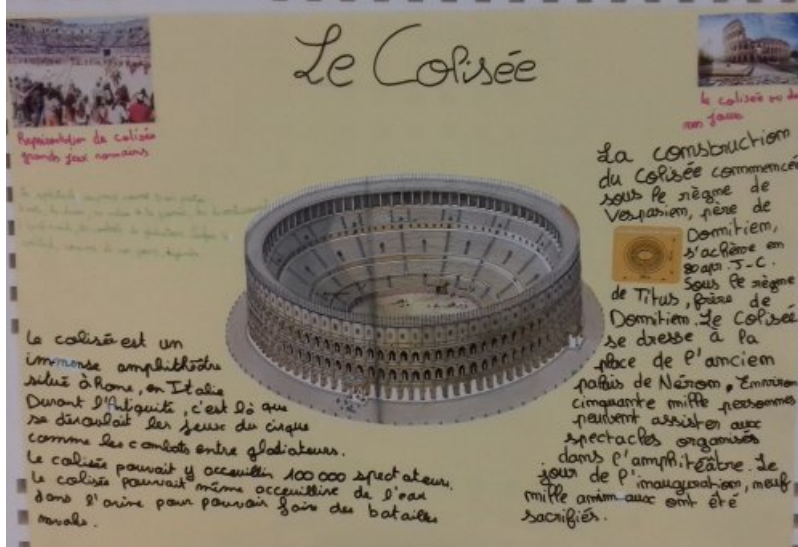 Le Colisée
Représentation du colisée
grands jeux romains
le colisée vu de
nos jours
La construction
du Colisée commence
sous le règne de
Vespasien, père de
Domitien,
s'achève en
80 apr. J-C.
Sous le règne
de Titus, frère de
Domitien. Le Colisée
se dresse à la
place de l'ancien
palais de Néron, Environ
cinquante mille personnes
peuvent assister aux
spectacles organisés
dans l'amphitéâtre. Le
jour de l'inauguration, neuf
mille animaux ont été
sacrifiés.
Le colisée est un
immense amphithéâtre
situé à Rome, en Italie
Durant l'Antiquité, c'est là que
se déroulait les jeux du cirque
comme les combats entre gladiateurs.
Le colisée pouvait y acceuillir 100 000 spectateurs.
Le colisée pouvait même acceuillire de l'eau
dans l'arène pour pouvoir faire des batailles
navale.